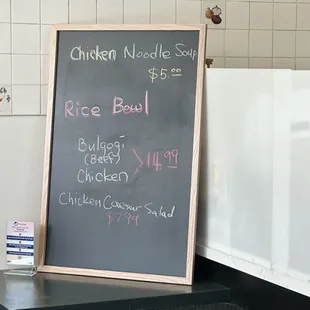 Chicken Noodle Soup
$5.00
Rice Bowl
Bulgogi
(Beef)
Chicken
> 14.99
Chicken Caesar Salad
$7.99